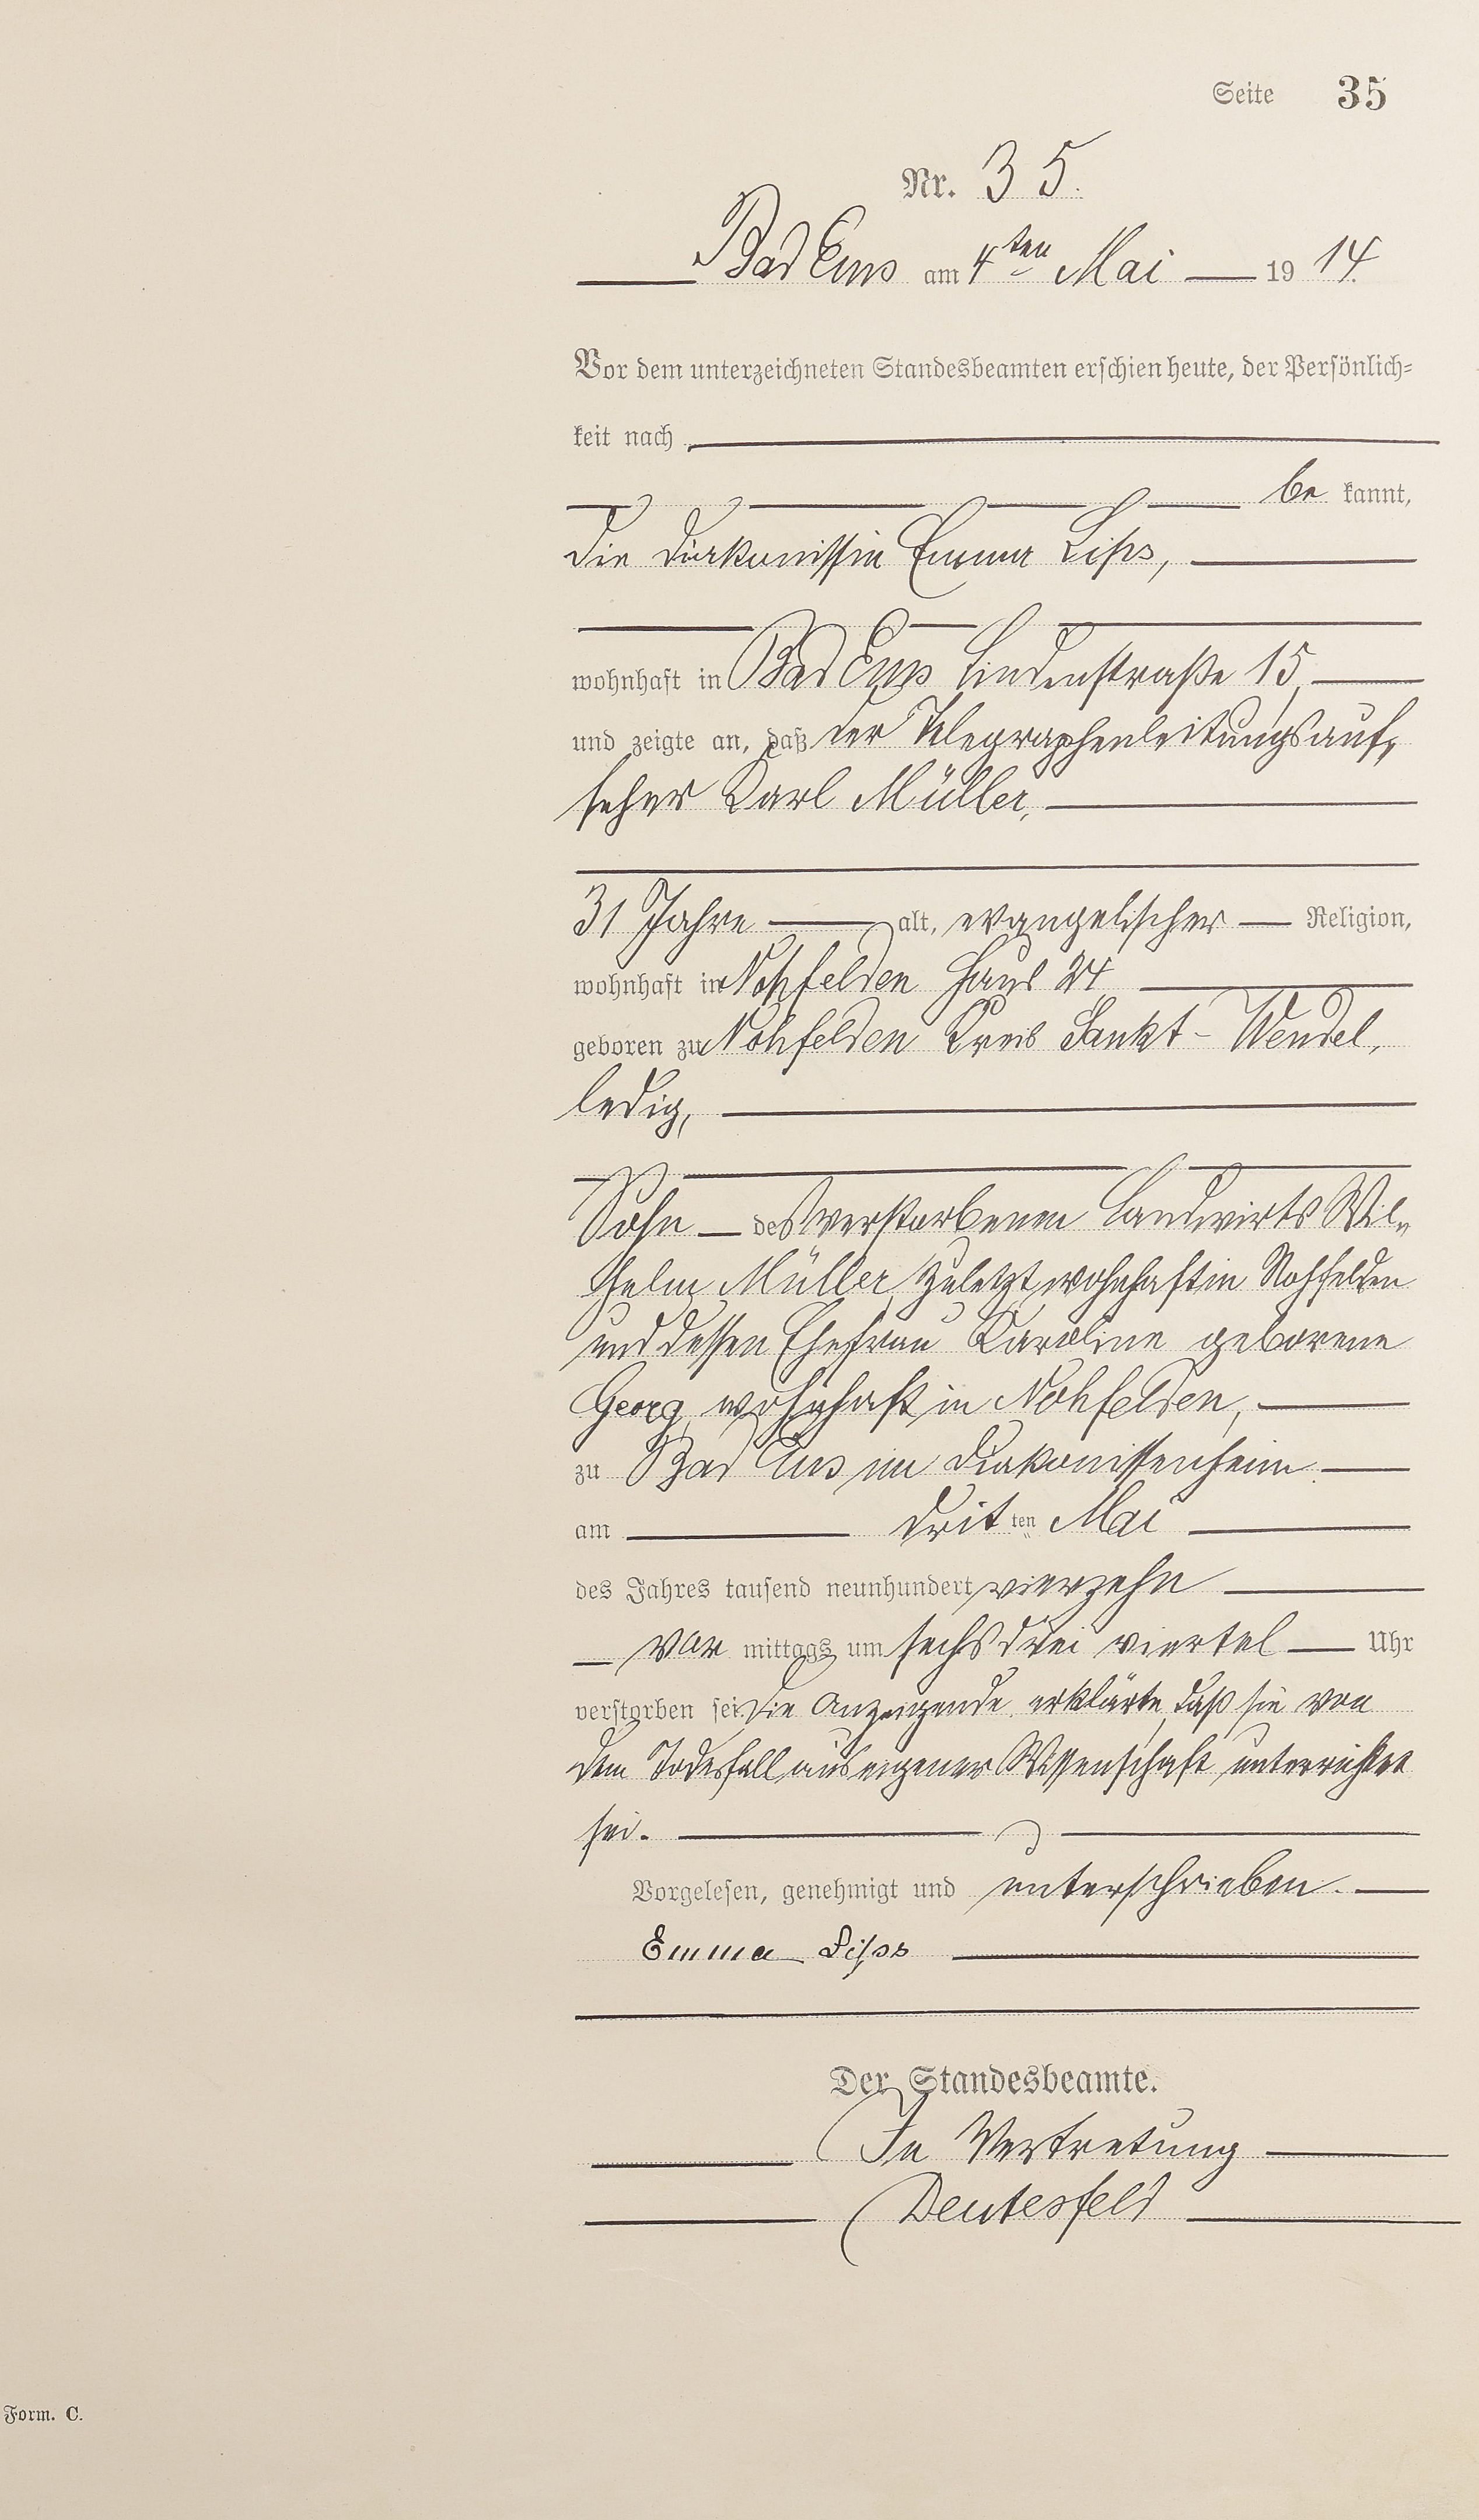 Seite 35
Nr. 35.
Bad Ems am 4ten Mai 1914.
Vor dem unterzeichneten Standesbeamten erschien heute, der Persönlich=
keit nach
be kannt,
die Diakonissin Emma Lips,
wohnhaft in Bad Ems Lindenstraße 15,
und zeigte an, daß der Telegraphenleitungsauf„
seher Karl Müller,
31 Jahre alt, evangelischer Religion,
wohnhaft in Nohfelden Haus 24
geboren zu Nohfelden Kreis Sankt-Wendel,
ledig,
Sohn des verstorbenen Landwirts Wil„
helm Müller, zuletzt wohnhaft in Nohfelden
und dessen Ehefrau Karoline geborene
Georg, wohnhaft in Nohfelden,
zu Bad Ems im Diakonissenheim
am dritten Mai
des Jahres tausend neunhundert vierzehn
vor mittags um sechs drei viertel Uhr
verstorben sei. Die Anzeigende erklärte, daß sie von
dem Todesfall aus eigener Wissenschaft unterrichtet
sei.
Vorgelesen, genehmigt und unterschrieben.
Emma Lips
Der Standesbeamte.
In Vertretung
Deutesfeld
Form. C.